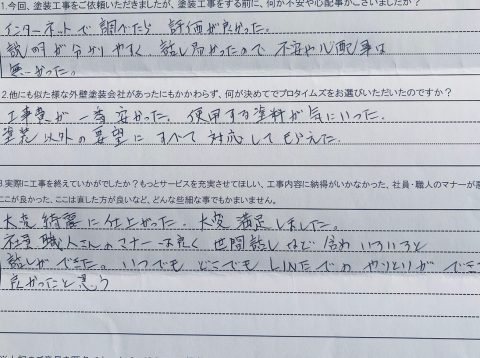 1.今回、塗装工事をご依頼いただきましたが、塗装工事をする前に、何か不安や心配事がございましたか?
インターネットで調べたら 評価が良かった。
説明が分かりやすく 話し易かったので不安や心配事は
無かった。
2.他にも似た様な外壁塗装会社があったにもかかわらず、何が決めてでプロタイムズをお選びいただいたのですか?
工事費が一番安かった。使用する塗料が気にいった。
塗装以外の要望にすべて対応してもらえた。
実際に工事を終えていかがでしたか?もっとサービスを充実させてほしい、工事内容に納得がいかなかった、社員・職人のマナーが
ここが良かった、ここは直した方が良いなど、どんな些細な事でもかまいません。
大変綺麗に仕上がった。大変満足しました。
社員 職人さんのマナーは良く 世間話しなど含め いろいろと
話しができた。いつでも どこでも LINEでの やりとりが でき
良かったと思う